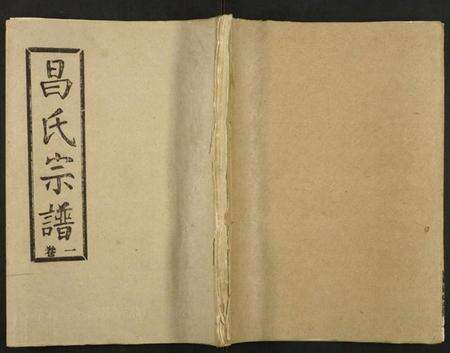 昌氏宗譜
卷一